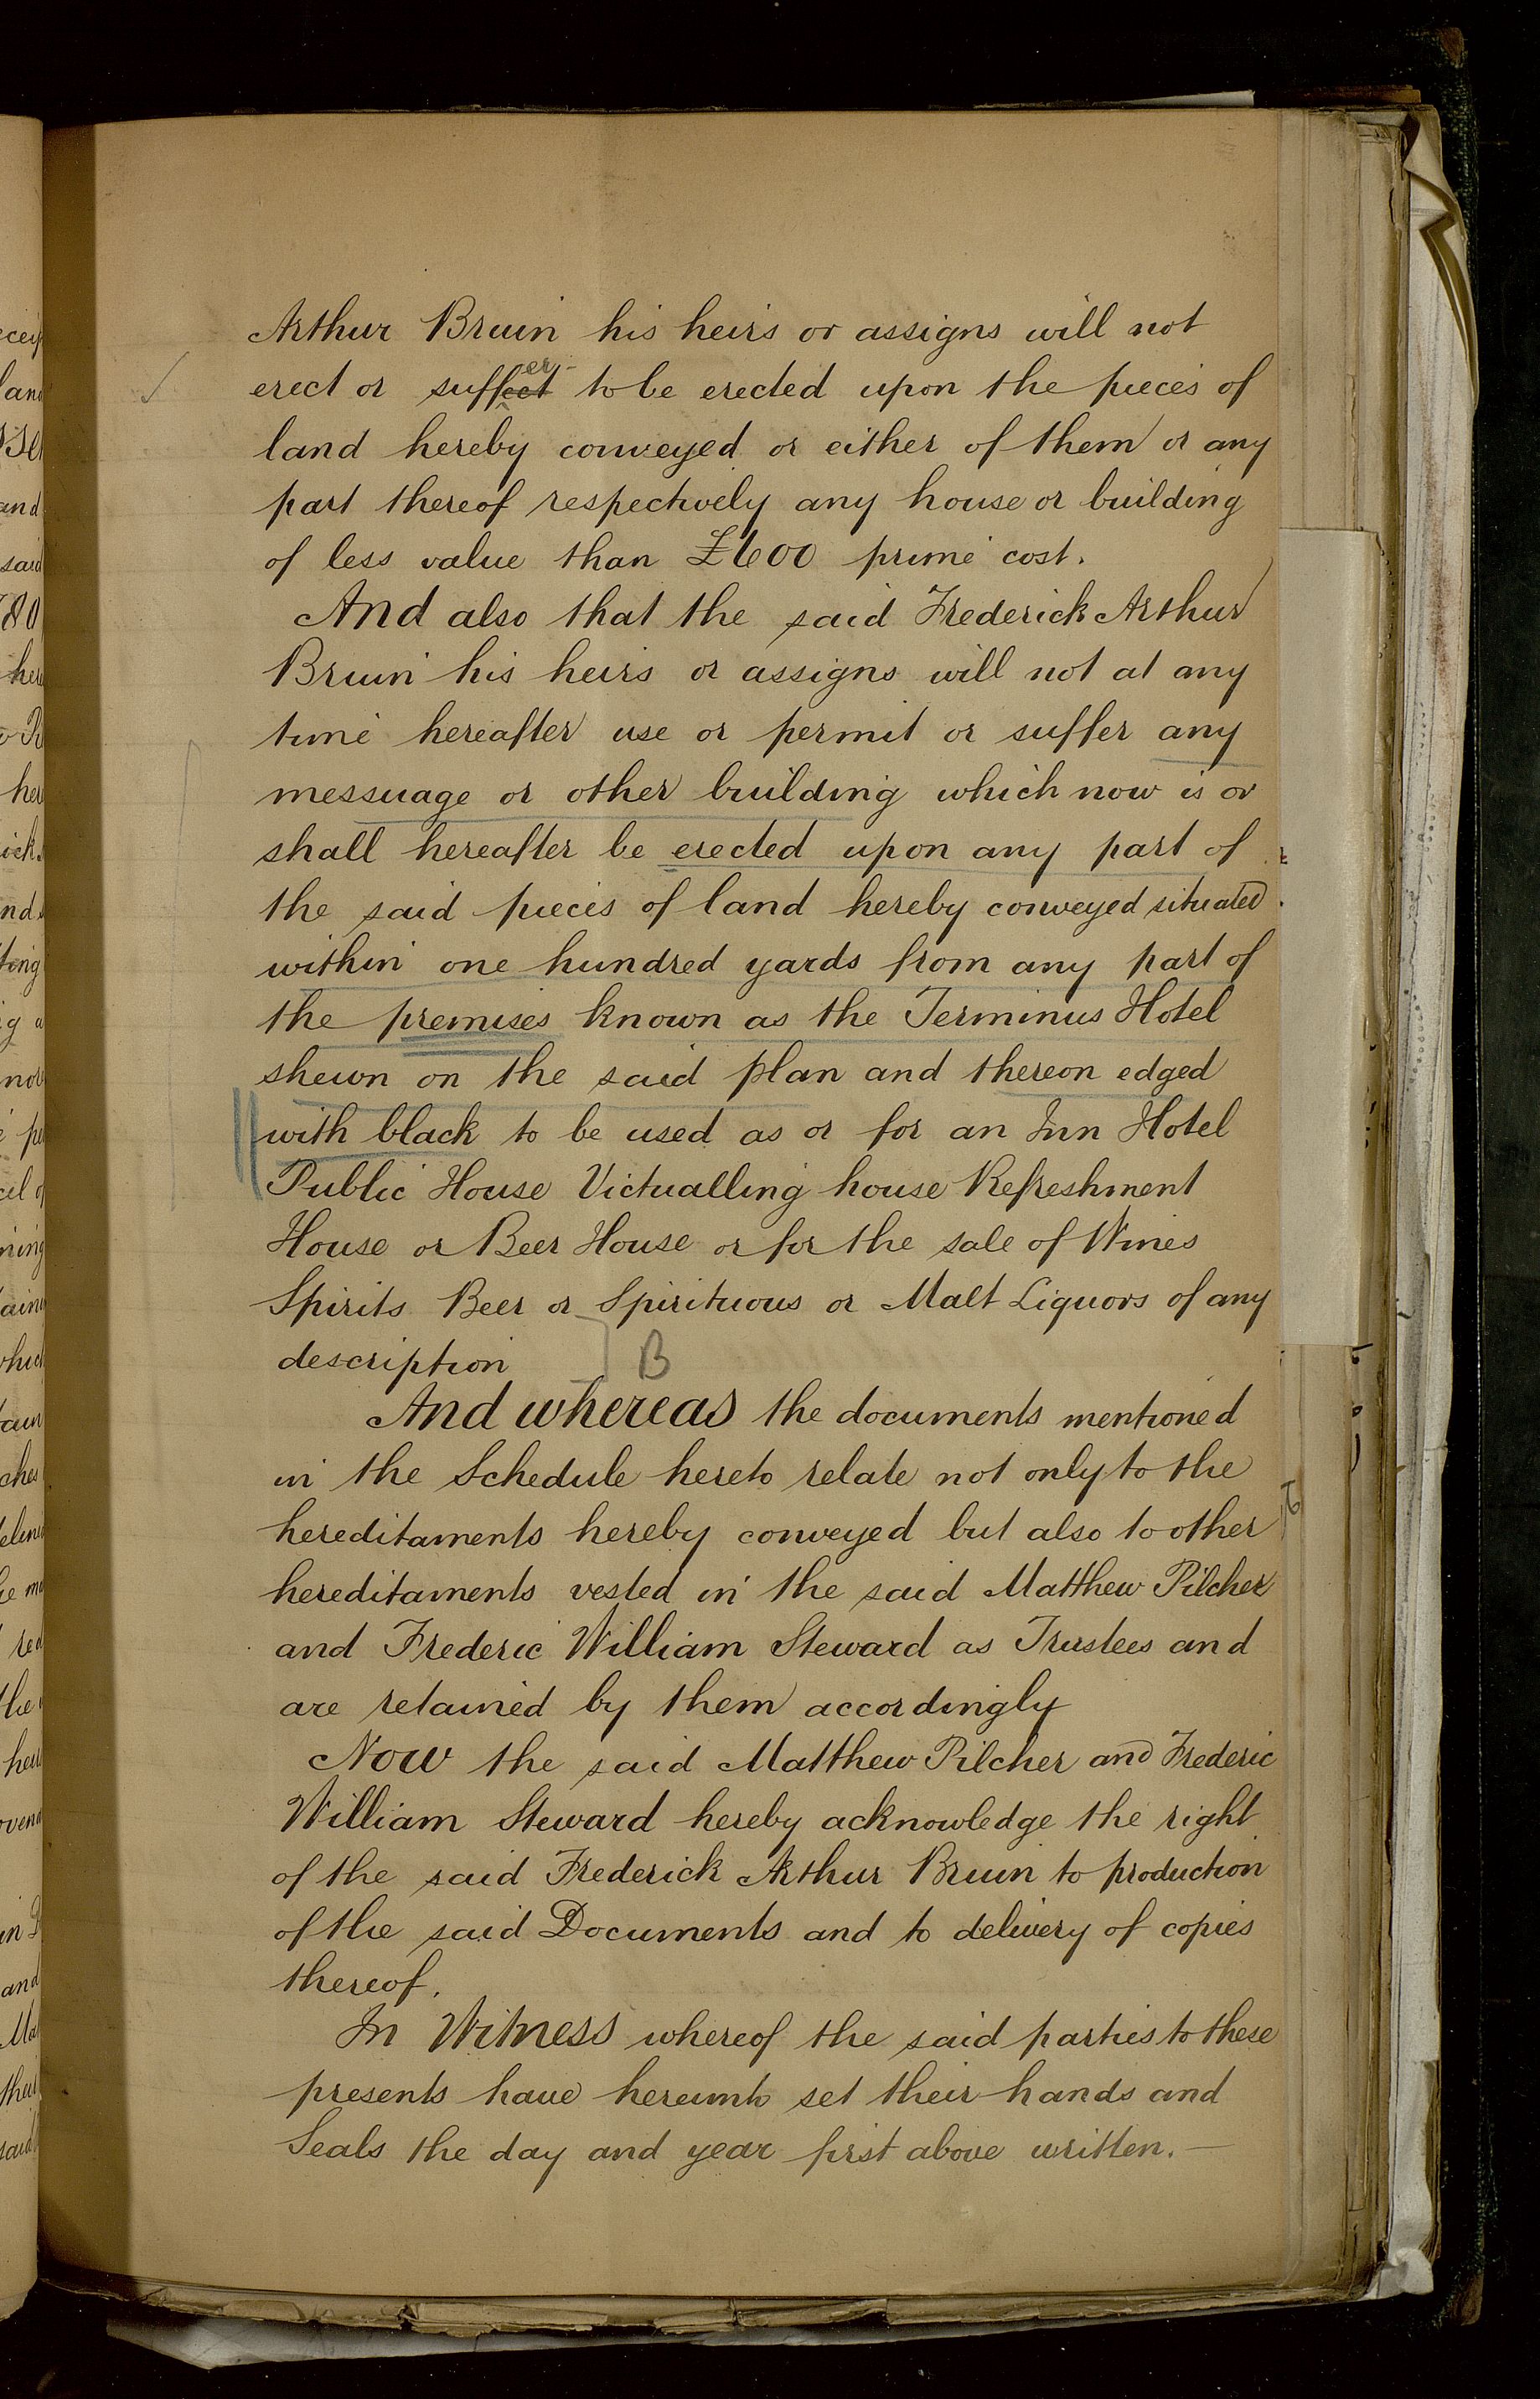 Arthur Bruin his heirs or assigns will not
erect or suffer to be erected upon the pieces of
land hereby conveyed or either of them or any
part thereof respectively any house or building
of less value than £600 prime cost.
And also that the said Frederick Arthur
Bruin his heirs or assigns will not at any
time hereafter use or permit or suffer any
messuage or other building which now is or
shall hereafter be erected upon any part of
the said pieces of land hereby conveyed situated
within one hundred yards from any part of
the premises known as the Terminus Hotel
shewn on the said plan and thereon edged
with black to be used as or for an Inn Hotel
Public House Victualling house Refreshment
House or Beer House or for the sale of Wines
Spirits Beer or Spirituous or Malt Liquors of any
description
B
And whereas the documents mentioned
in the Schedule hereto relate not only to the
hereditaments hereby conveyed but also to other
hereditaments vested in the said Matthew Pilcher
and Frederic William Steward as Trustees and
are retained by them accordingly
Now the said Matthew Pilcher and Frederic
William Steward hereby acknowledge the right
of the said Frederick Arthur Bruin to production
of the said Documents and to delivery of copies
thereof.
In Witness whereof the said parties to these
presents have hereunto set their hands and
Seals the day and year first above written.—